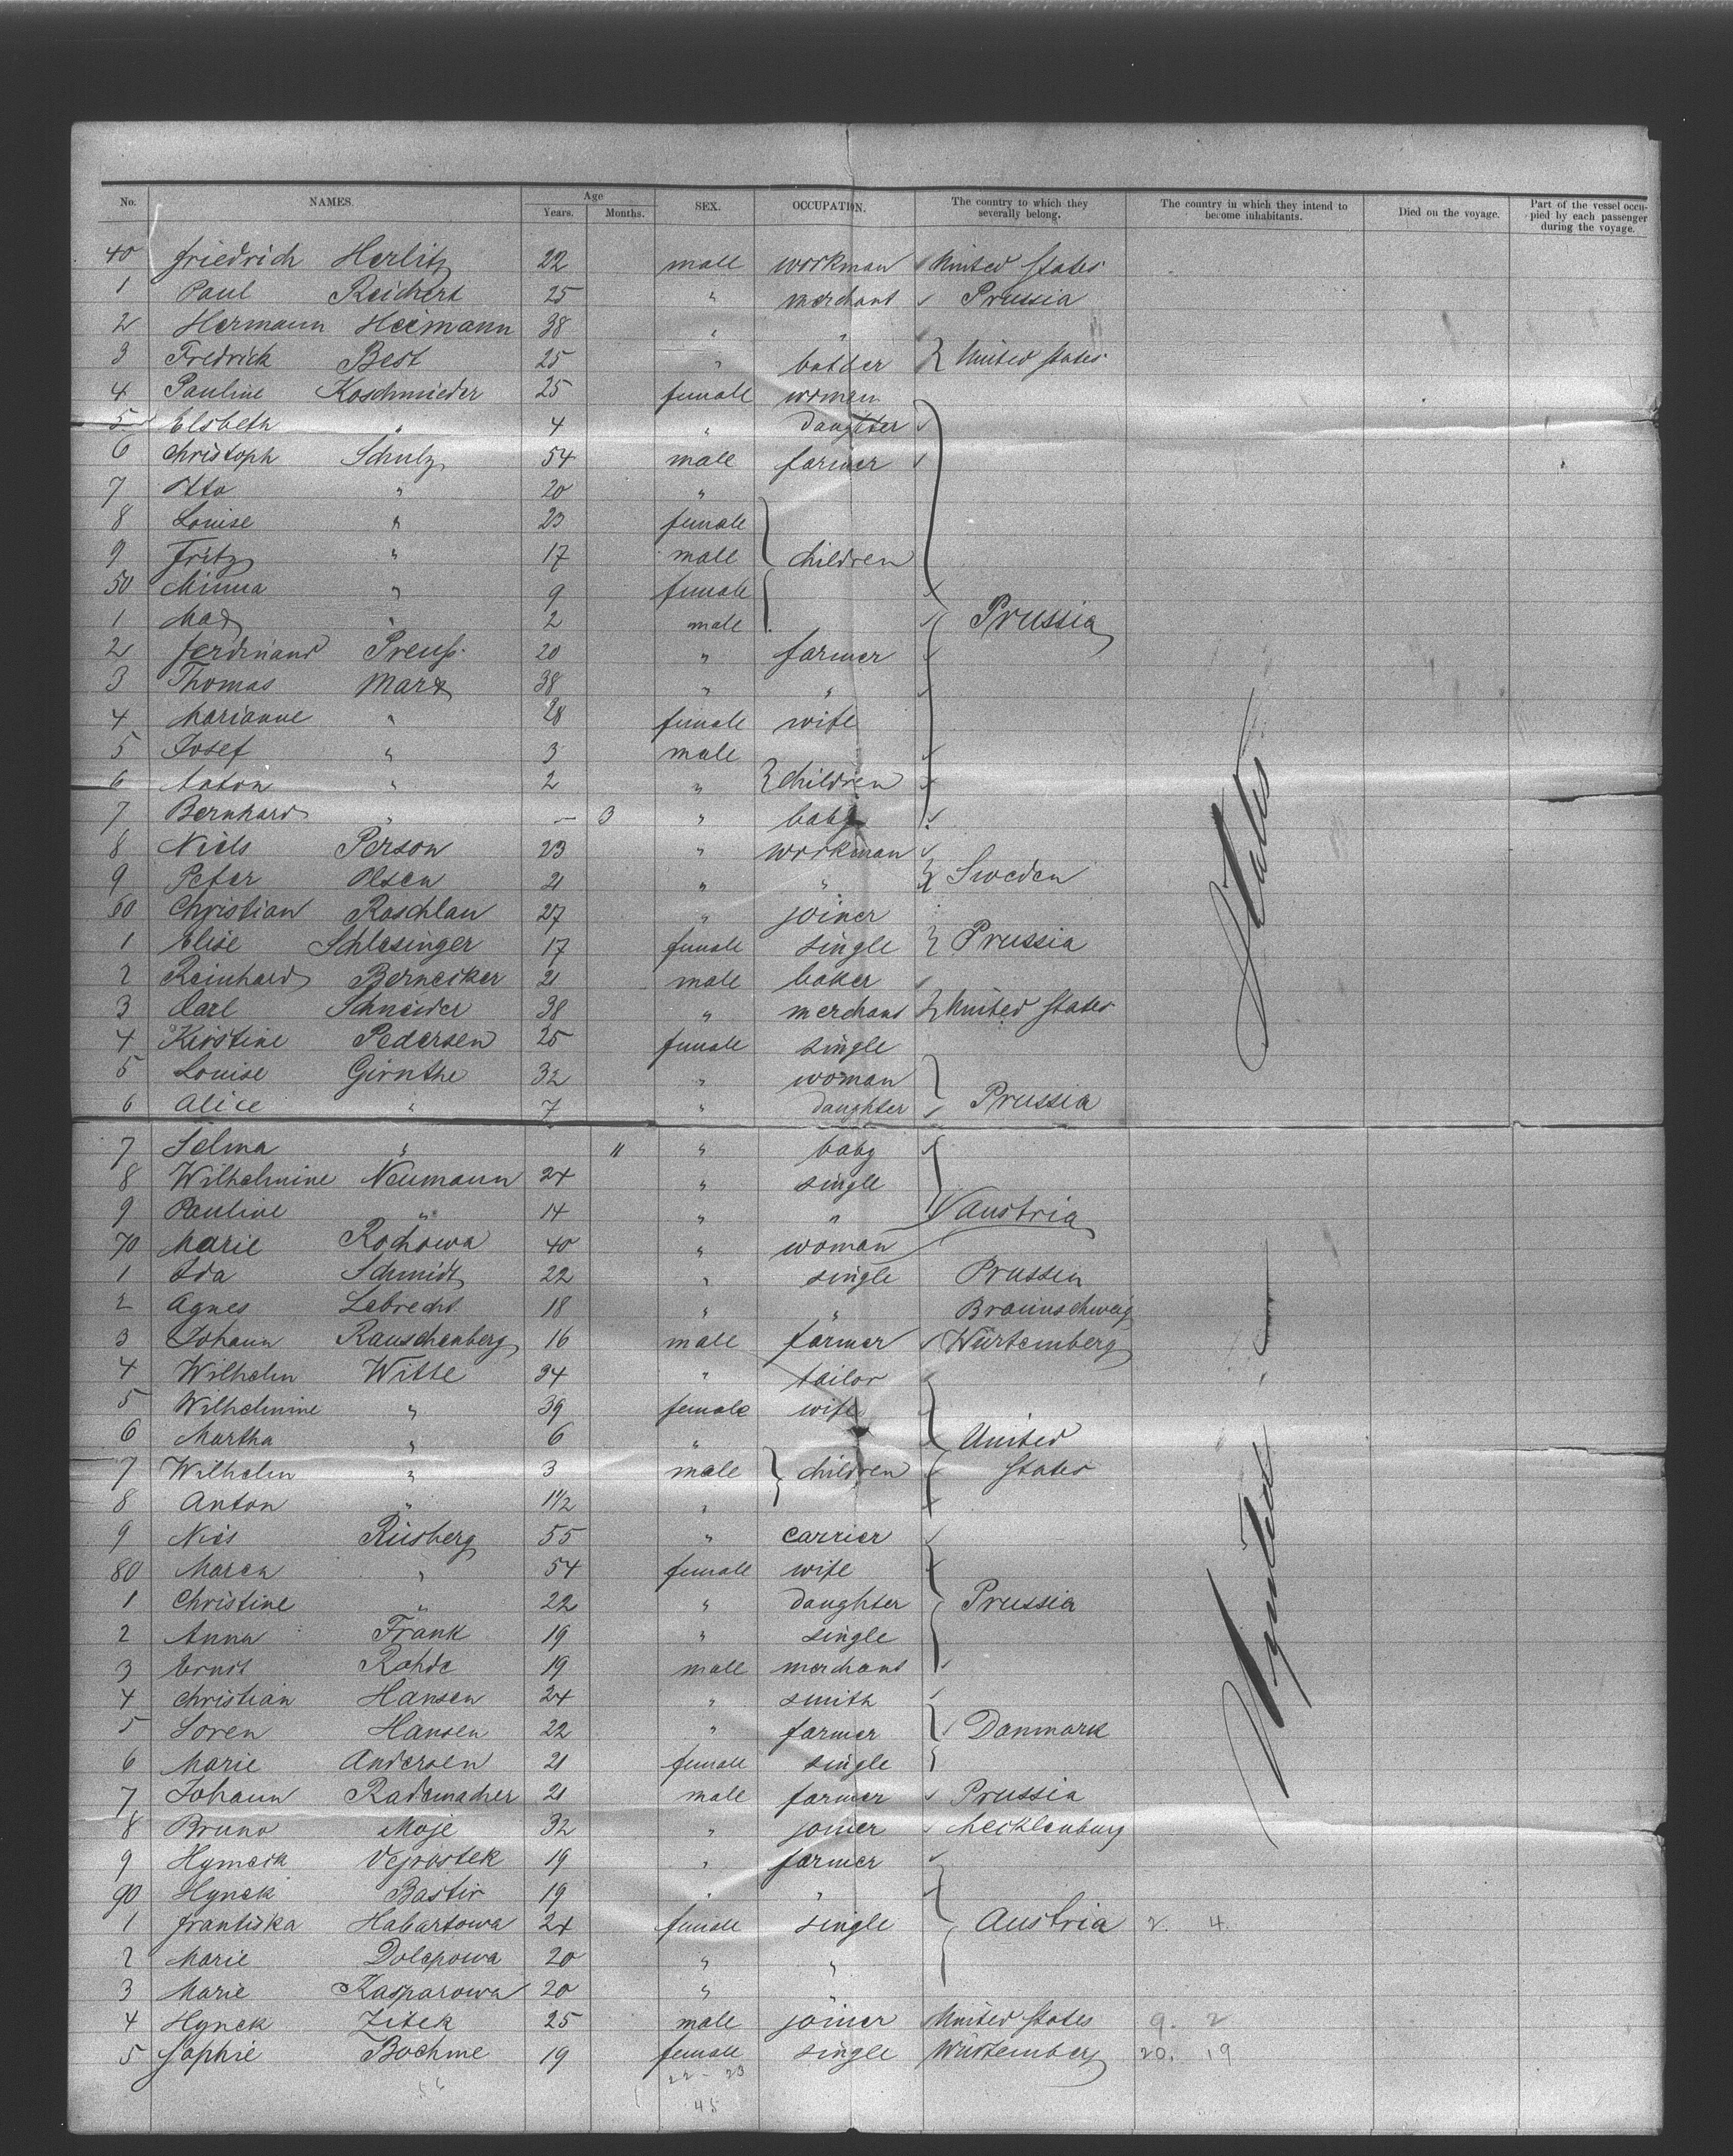 No. NAMES. Age Years. Months. SEX. OCCUPATION. The country to which they severally belong. The country in which they intend to become inhabitants. Died on the voyage. Part of the vessel occupied by each passenger during the voyage.
40 Friedrich Herlitz 22 male workman United States
1 Paul Reichert 25 " merchant Prussia
2 Hermann Heimann 38 " "
3 Fredrick Best 25 " United States
4 Pauline Koschmieder 25 female woman
5 Elsbeth " 4 " daughter
6 Christoph Schulz 54 male farmer
7 Otto " 20 "
8 Louise " 23 female
9 Fritz " 17 male children
50 Minna " 9 female
1 Max " 2 male Prussia
2 Ferdinand Preuß 20 " farmer
3 Thomas Marx 38 " "
4 Marianne " 28 female wife
5 Josef " 3 male
6 Anton " 2 " children
7 Bernhard " — 3 " baby
8 Niels Person 23 " workman
9 Peter Olsen 21 " " Sweden
60 Christian Raschlau 27 " joiner
1 Elise Schlesinger 17 female single Prussia
2 Reinhard Bernecker 21 male baker
3 Carl Schneider 38 " merchant United States
4 Kirstine Pedersen 25 female single
5 Louise Girnthe 32 " woman
6 Alice " 7 " daughter Prussia
7 Selma " 11 " baby
8 Wilhelmine Neumann 24 " single
9 Pauline " 14 " " Austria
70 Marie Rochowa 40 " woman
1 Ida Schmidt 22 " single Prussen
2 Agnes Lebrecht 18 " " Braunschweig
3 Johann Rauschenberg 16 male farmer Würtemberg
4 Wilhelm Witte 34 " tailor
5 Wilhelmine " 39 female wife
6 Martha " 6 " United
7 Wilhelm " 3 male children States
8 Anton " 1 1/2 "
9 Nils Riisberg 55 " carrier
80 Maren " 54 female wife
1 Christine " 22 " daughter Prussia
2 Anna Frank 19 " single
3 Ernst Rohde 19 male merchant
4 Christian Hansen 24 " smith
5 Soren Hansen 22 " farmer Danmark
6 Marie Andersen 21 female single
7 Johann Radamacher 21 male farmer Prussia
8 Bruno Moje 32 " joiner Mecklenburg
9 Hymek Vejrostek 19 " farmer
90 Hynek Bastir 19 " "
1 Frantiska Habartowa 24 female single Austria 2. 4.
2 Marie Dolepowa 20 " "
3 Marie Kasparowa 20 " "
4 Hynek Zitek 25 male joiner United States 9. 2
5 Sophie Boehme 19 female single Würtemberg 20. 19
22 - 23
45
United States